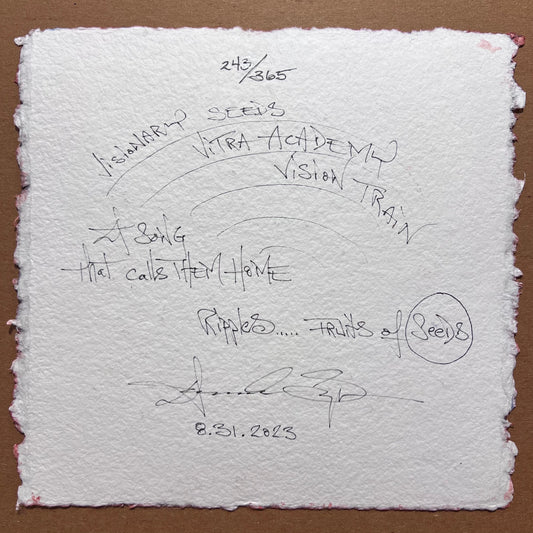 243/365
VISIONARY SEEDS
VITRA ACADEMY
VISION TRAIN
A SONG
that calls THEM HOME
Ripples..... FRUITS of SeeDS
8.31.2023